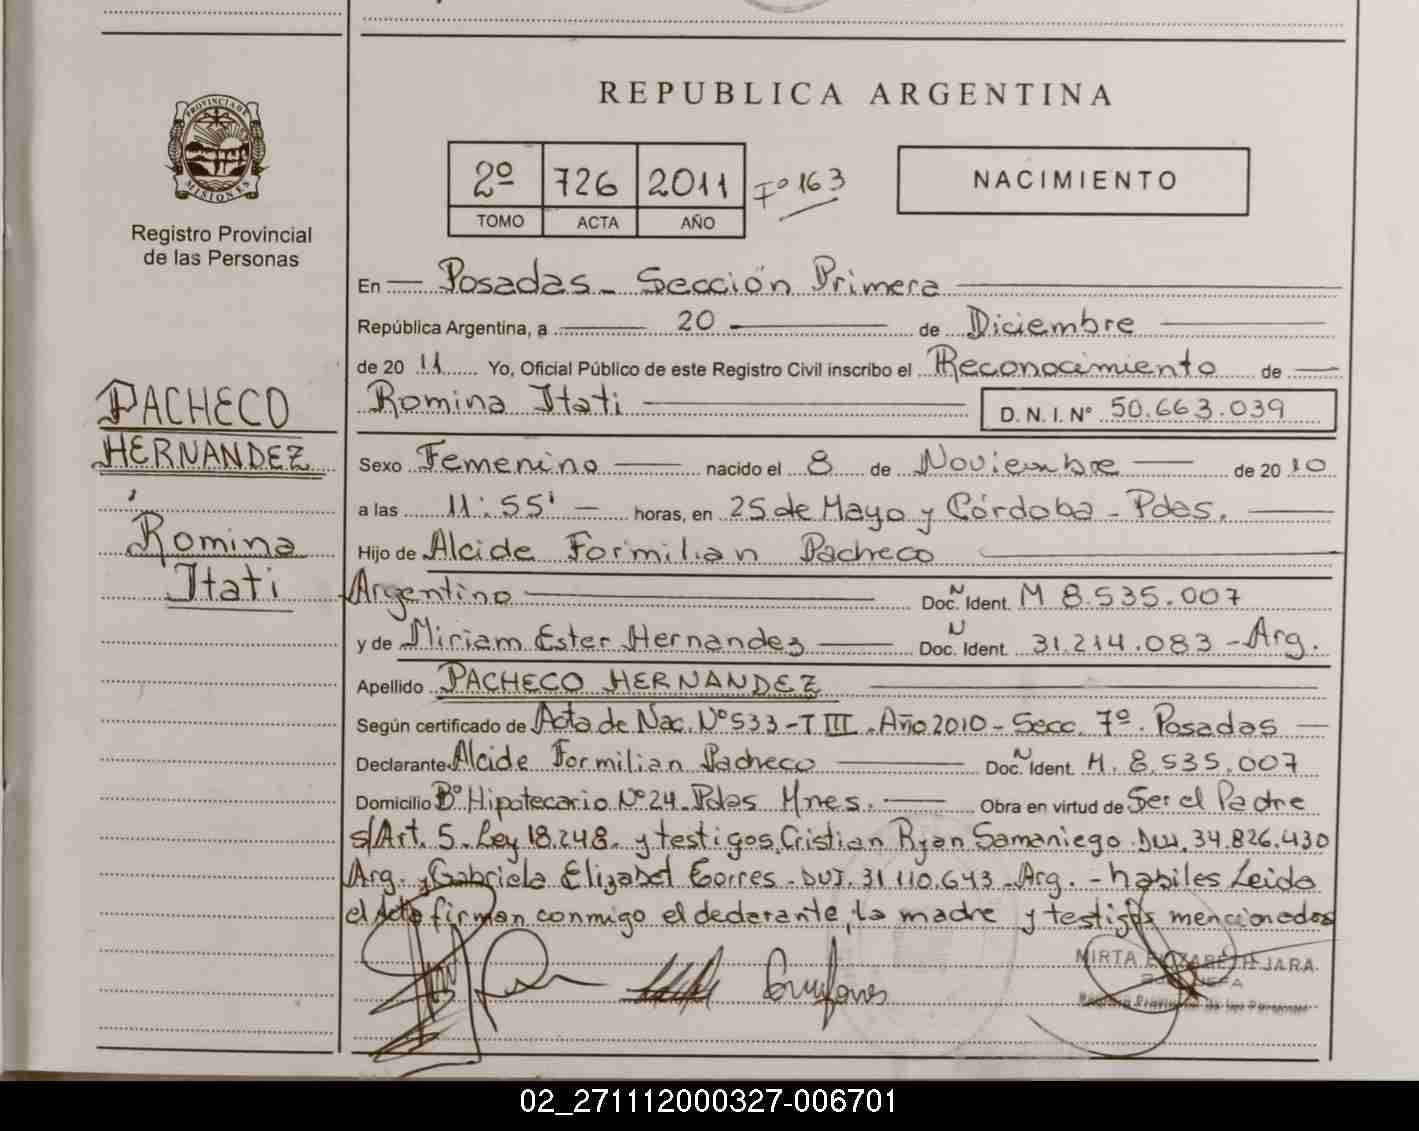 REPUBLICA ARGENTINA
PROVINCIA DE MISIONES
Registro Provincial
de las Personas
2º 726 2011 Fº 163
TOMO ACTA AÑO
NACIMIENTO
PACHECO
HERNANDEZ
Romina
Itati
En Posadas - Sección Primera
República Argentina, a 20 de Diciembre
de 2011 Yo, Oficial Público de este Registro Civil inscribo el Reconocimiento de
Romina Itati D. N. I. Nº 50.663.039
Sexo Femenino nacido el 8 de Noviembre de 2010
a las 11:55' horas, en 25 de Mayo y Córdoba - Pdas.
Hijo de Alcide Formilian Pacheco
Argentino Doc. N Ident. M 8.535.007
y de Miriam Ester Hernandez Doc. N Ident. 31.214.083 - Arg.
Apellido PACHECO HERNANDEZ
Según certificado de Acta de Nac. Nº 533 - T III - Año 2010 - Secc. 7º. Posadas
Declarante Alcide Formilian Pacheco Doc. N Ident. M. 8.535.007
Domicilio Bº Hipotecario Nº 24 - Pdas Mnes. Obra en virtud de Ser el Padre
s/Art. 5 - Ley 18.248 - y testigos Cristian Ryan Samaniego DNI. 34.826.430
Arg. y Gabriela Elizabet Torres - DNI. 31.110.643 - Arg. - habiles Leida
el Acta firman conmigo el declarante, la madre y testigos mencionados
MIRTA JARA
Registro Provincial de las Personas
02_271112000327-006701